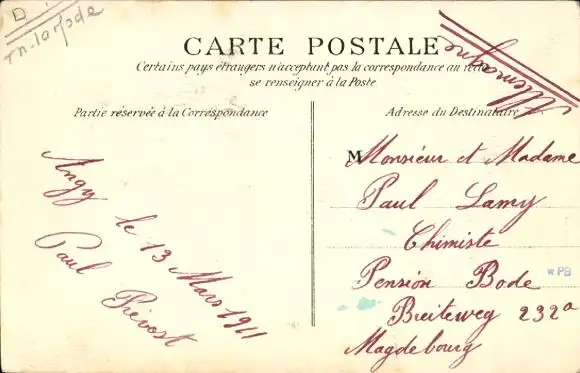 CARTE POSTALE
Certains pays étrangers n'acceptant pas la correspondance au recto
se renseigner à la Poste
Partie réservée à la Correspondance
Adresse du Destinataire
Allemagne
Angy le 13 Mars 1911
Paul Prévost
Monsieur et Madame
Paul Lamy
Chimiste
Pension Bode
Breiteweg 232a
Magdebourg
PB